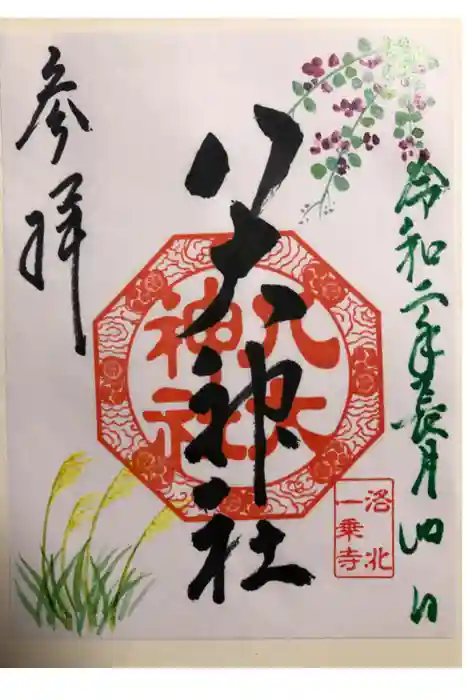 令和二年長月四日
八大神社
参拝
八大
神社
洛北
一乗寺